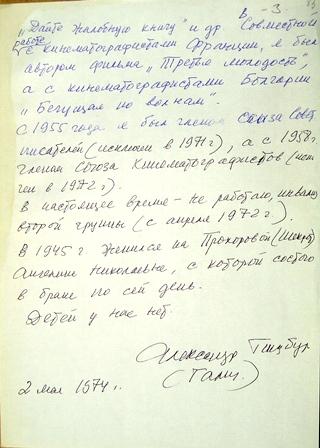 В -3-
„Дайте жалобную книгу" и др. Совместной
работе
с кинематографистами Франции, я был
автором фильма „Третья молодость",
а с кинематографистами Болгарии
„Бегущая по волнам".
С 1955 года я был членом Союза Сов.
писателей (исключен в 1971 г), а с 1958 г.
членом Союза Кинематографистов (исклю
чен в 1972 г.).
В настоящее время - не работаю, инвалид
второй группы (с апреля 1972 г.).
В 1945 г. женился на Прохоровой (Шекрот)
Ангелине Николаевне, с которой состою
в браке по сей день.
Детей у нас нет.
Александр Гинзбург
(Галич).
2 мая 1974 г.